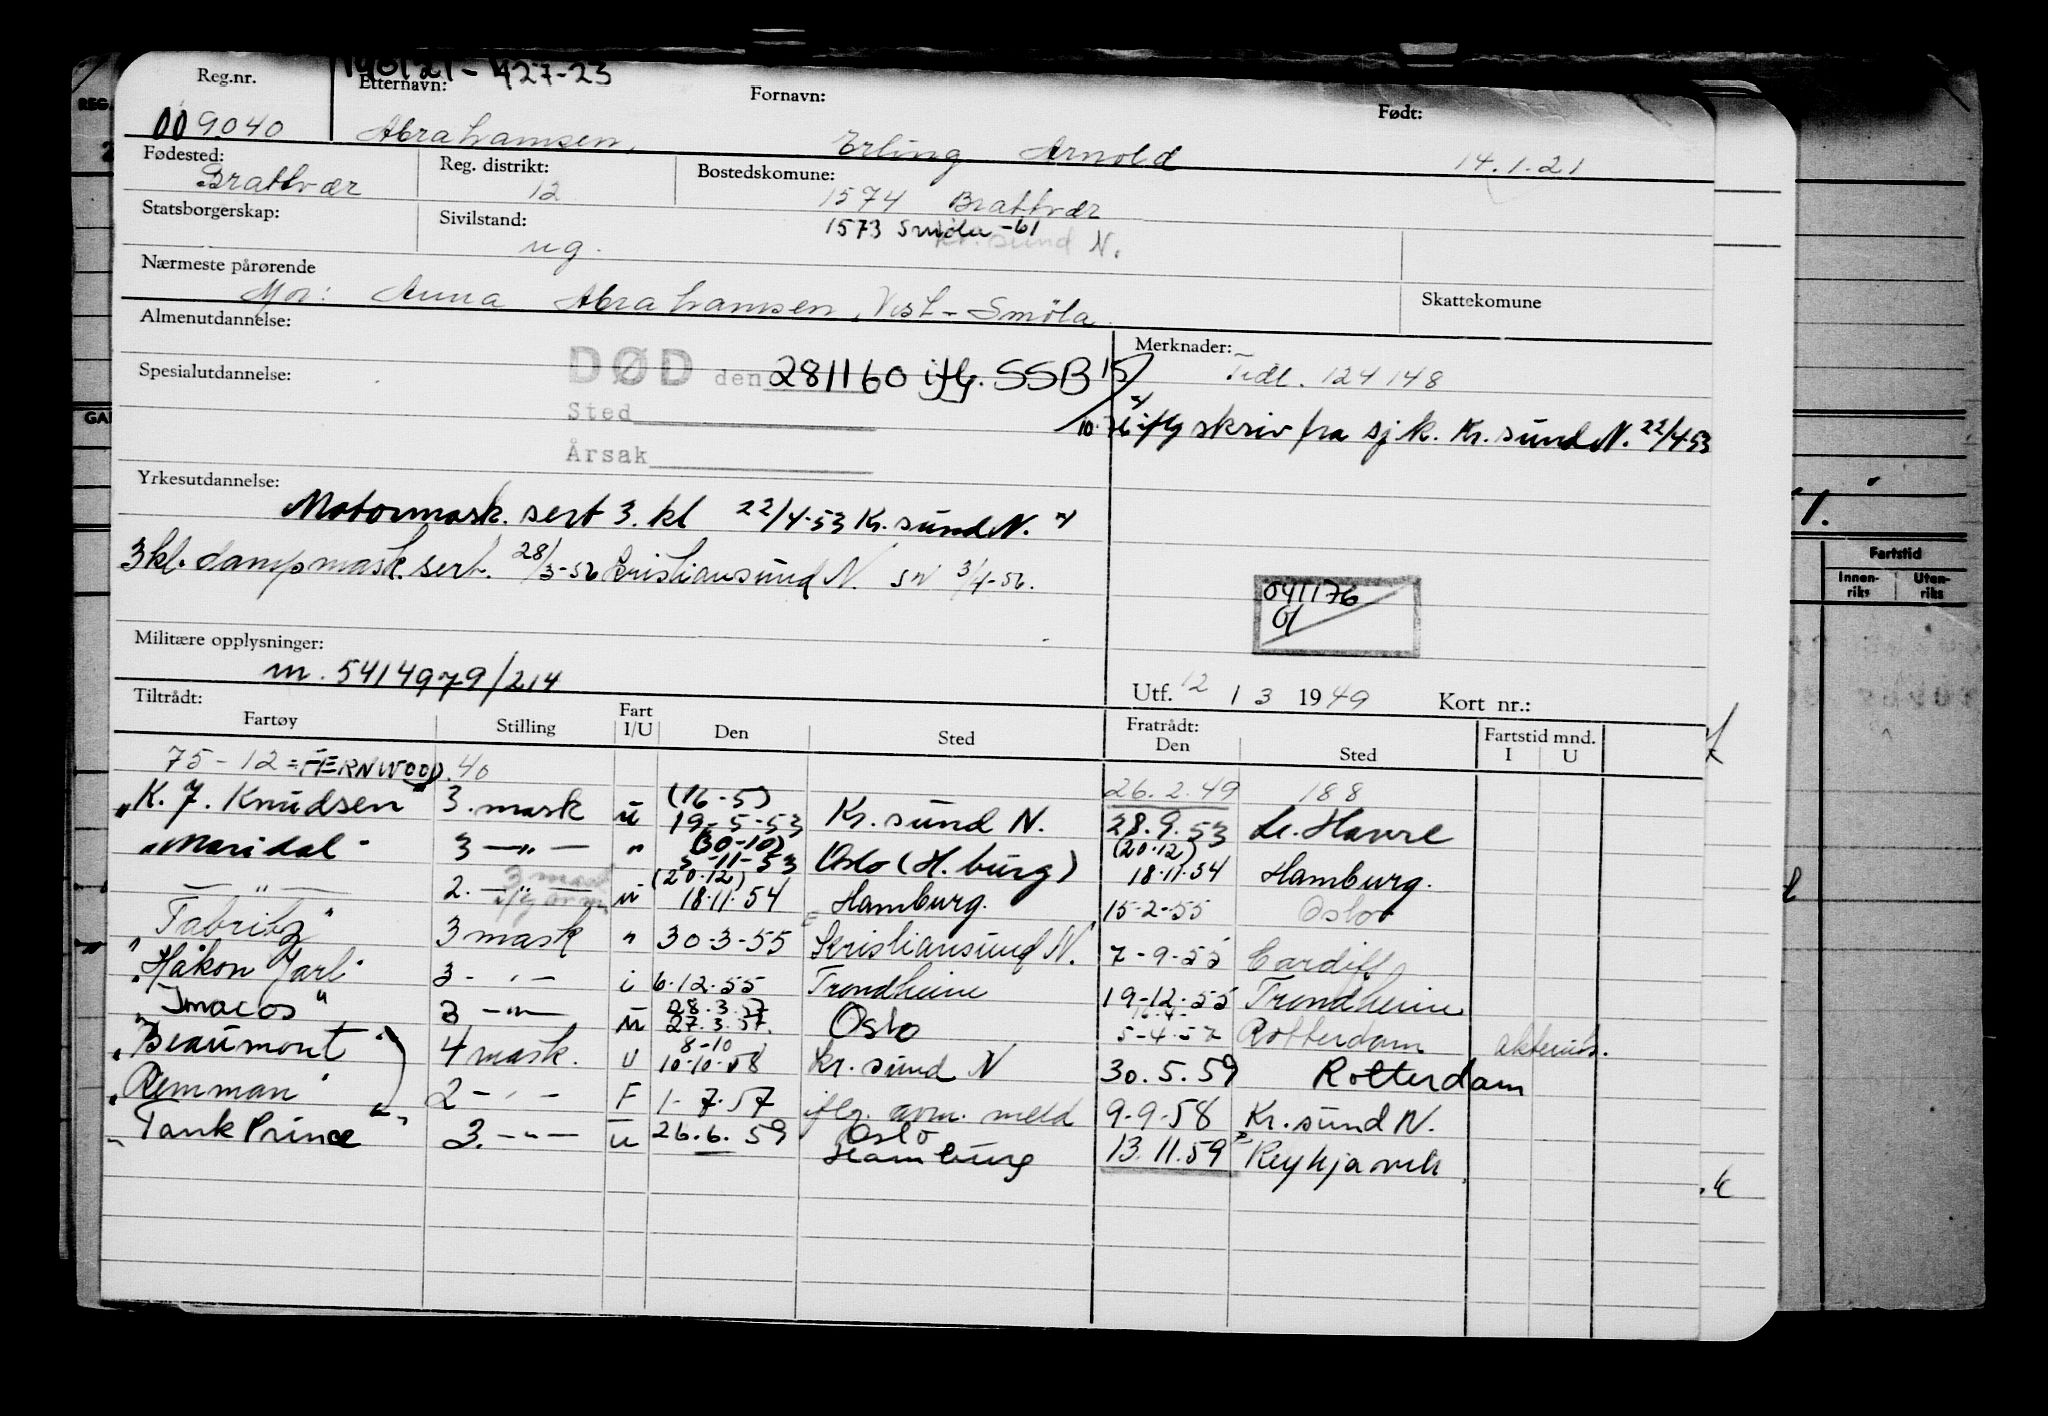 140121-427-23
Reg.nr. Etternavn: Fornavn: Født:
009040 Abrahamsen, Erling Arnold 14.1.21
Fødested: Reg. distrikt: Bostedskomune:
Brattvær 12 1574 Brattvær
Statsborgerskap: Sivilstand: 1573 Smøla -61
ug. Kr. sund N.
Nærmeste pårørende Skattekomune
Mor: Anna Abrahamsen, Vest-Smöla.
Almenutdannelse: Merknader:
DØD den 281160 iflg. SSB 15/10.76 Tidl. 124148
Spesialutdannelse:
Sted iflg skriv fra sj.k. Kr. sund N. 22/4-53
Årsak
Yrkesutdannelse:
Motormask. sert 3. kl 22/4-53 Kr. sund N.
3 kl. dampmask. sert. 28/3-56 Kristiansund N. sn 3/4-56.
041176
Militære opplysninger:
m. 5414979/214
Utf. 12 / 3 1949 Kort nr.:
Tiltrådt: Fratrådt: Fartstid mnd.
Fartøy Stilling Fart I/U Den Sted Den Sted I U
75-12 = FERNWOOD. 40 26.2.49 188
"K. J. Knudsen" 3. mask u (16-5) 19-5-53 Kr. sund N. 28.9.53 Le. Havre
"Maridal" 3 -"- " (30-10) 5-11-53 Oslo (H.burg) (20.12) 18.11.54 Hamburg.
-"- 2. -"- u (20.12) 18.11.54 Hamburg. 15-2-55 Oslo
"Fabritz" 3 mask " 30-3-55 Kristiansund N. 7-9-55 Cardiff
"Håkon Jarl" 3 -"- i 6.12.55 Trondheim 19-12-55 Trondheim
"Imacos" 3 -"- u 28.3.57 27.3.57. Oslo 16.4. 5-4-57 Rotterdam
"Beaumont" 4 mask. U 8-10 10-10-58 Kr. sund N 30.5.59 Rotterdam
"Remman" 2 -"- F 1-7.57 iflg. avm. meld 9-9-58 Kr. sund N.
"Tank Prince 3. -"- u 26.6.59 Oslo Hamburg 13.11.59 Reykjavik
REG.
GA
Fartstid
Innen-
riks
Uten-
riks